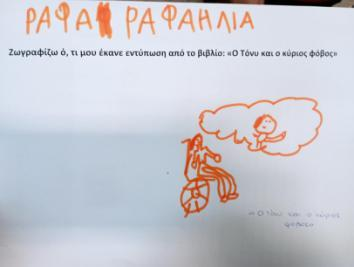 ΡΑΦΑ ΡΑΦΑΗΛΙΑ
Ζωγραφίζω ό, τι μου έκανε εντύπωση από το βιβλίο: «Ο Τόνυ και ο κύριος φόβος»
«Ο Τόνυ και ο κύριος
φόβος»